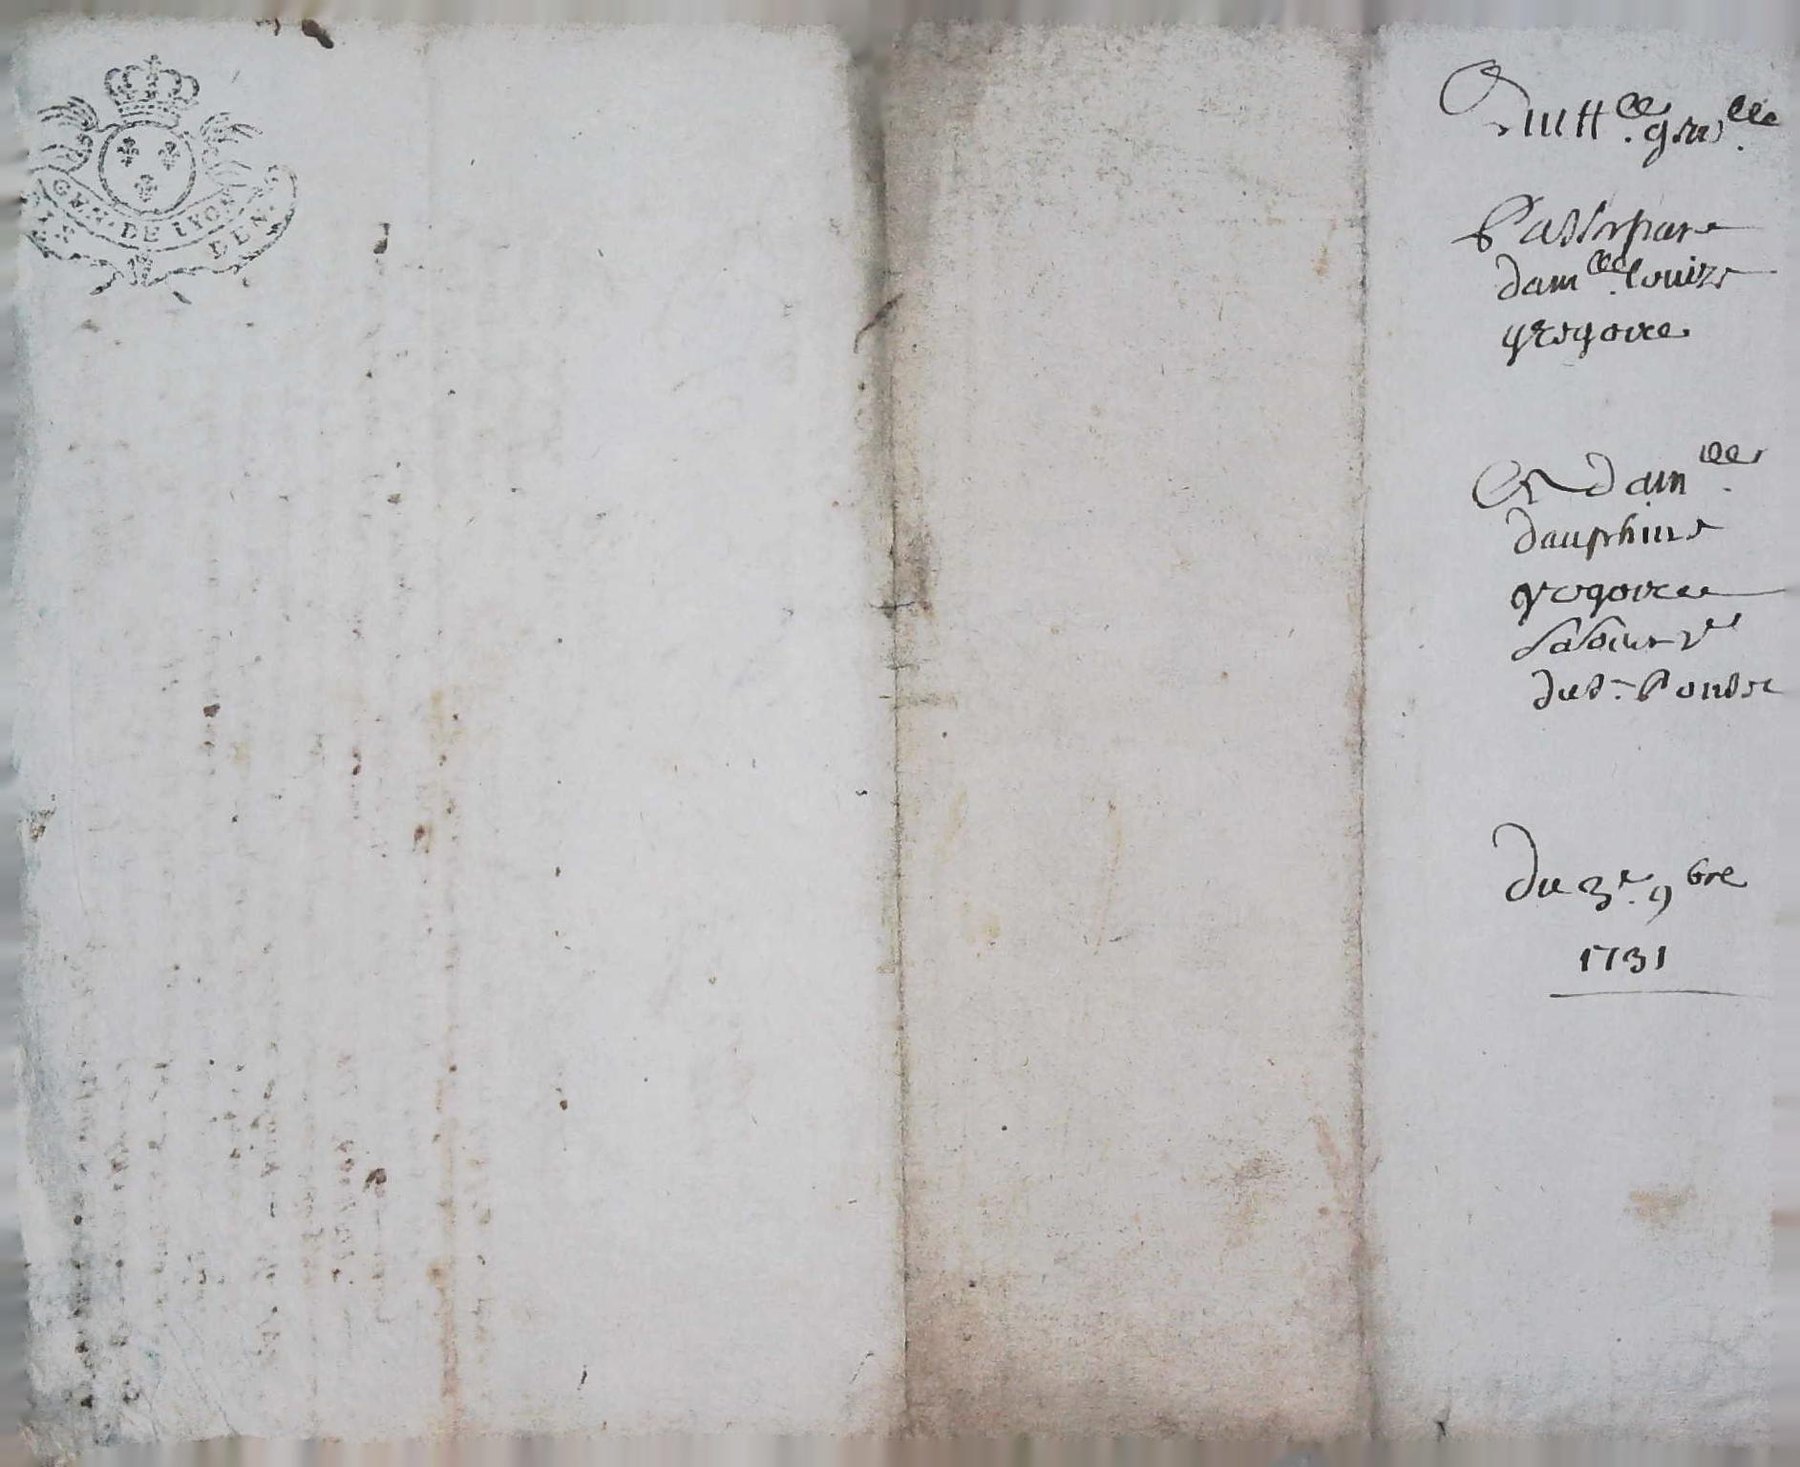 GEN. DE LYON
DEN
Quitt.ce gra.lle
Passé par
dam.lle louize
gregoire
Et dam.lles
dauphine
gregoire
sa sœur
du 3e. 9bre
1731